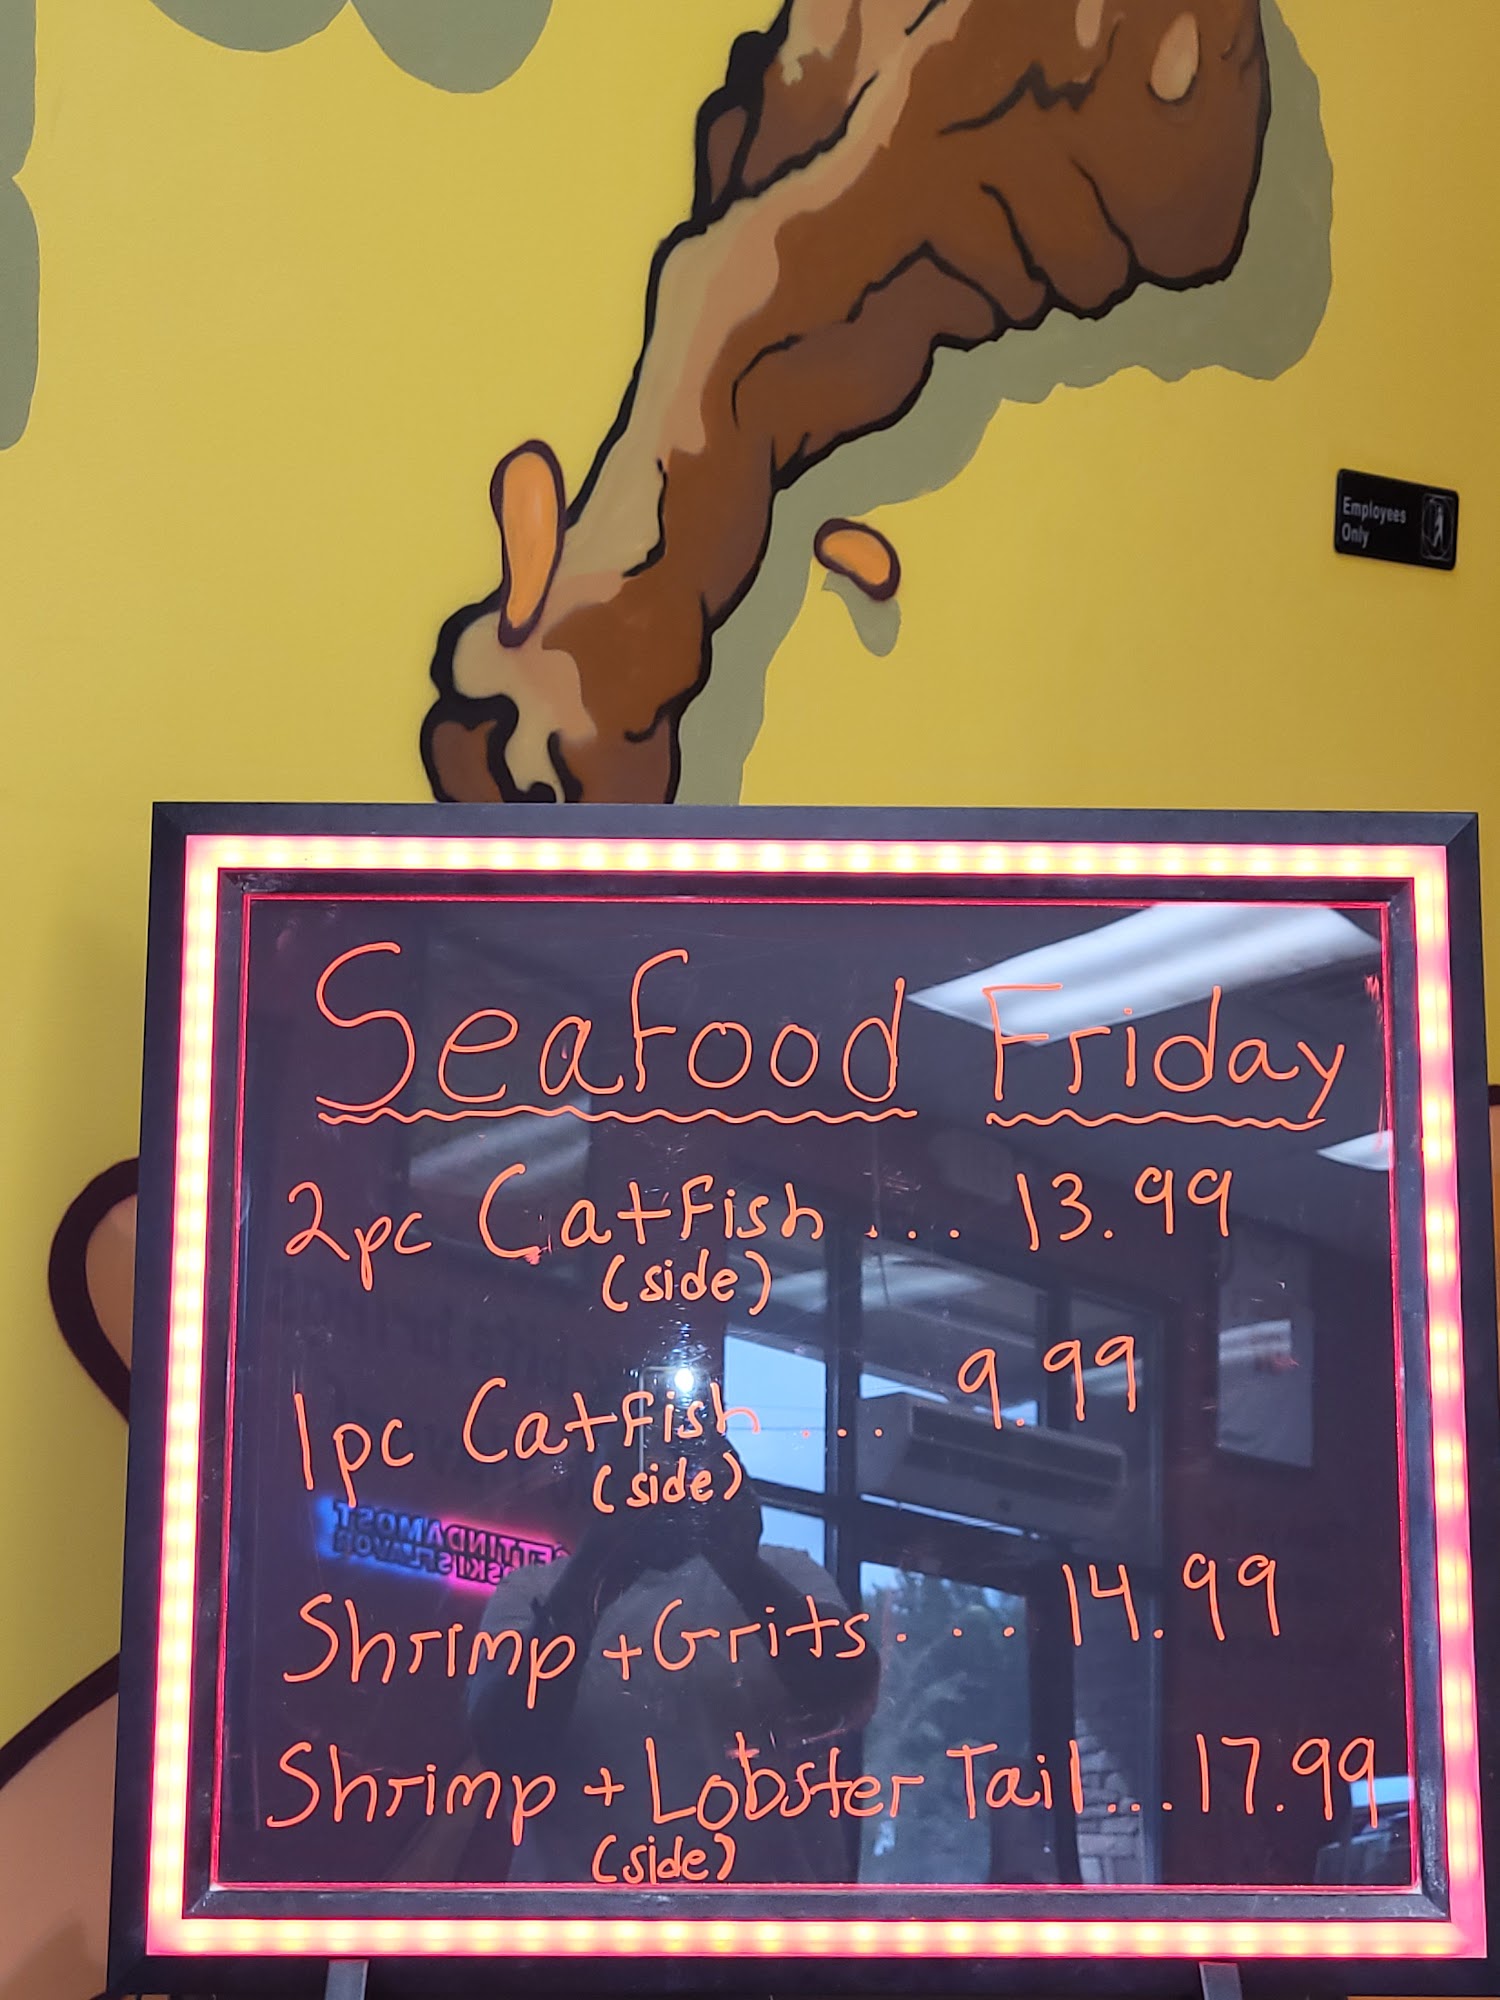 Employees
Only
Seafood Friday
2pc Catfish ... 13.99
(side)
1pc Catfish ... 9.99
(side)
Shrimp + Grits ... 14.99
Shrimp + Lobster Tail ... 17.99
(side)